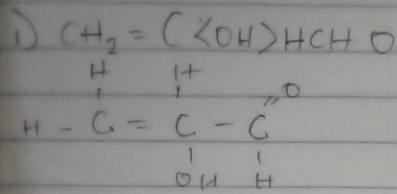 1) CH₂ = C<OH>HCHO
H H
H - C = C - C = O
OH H